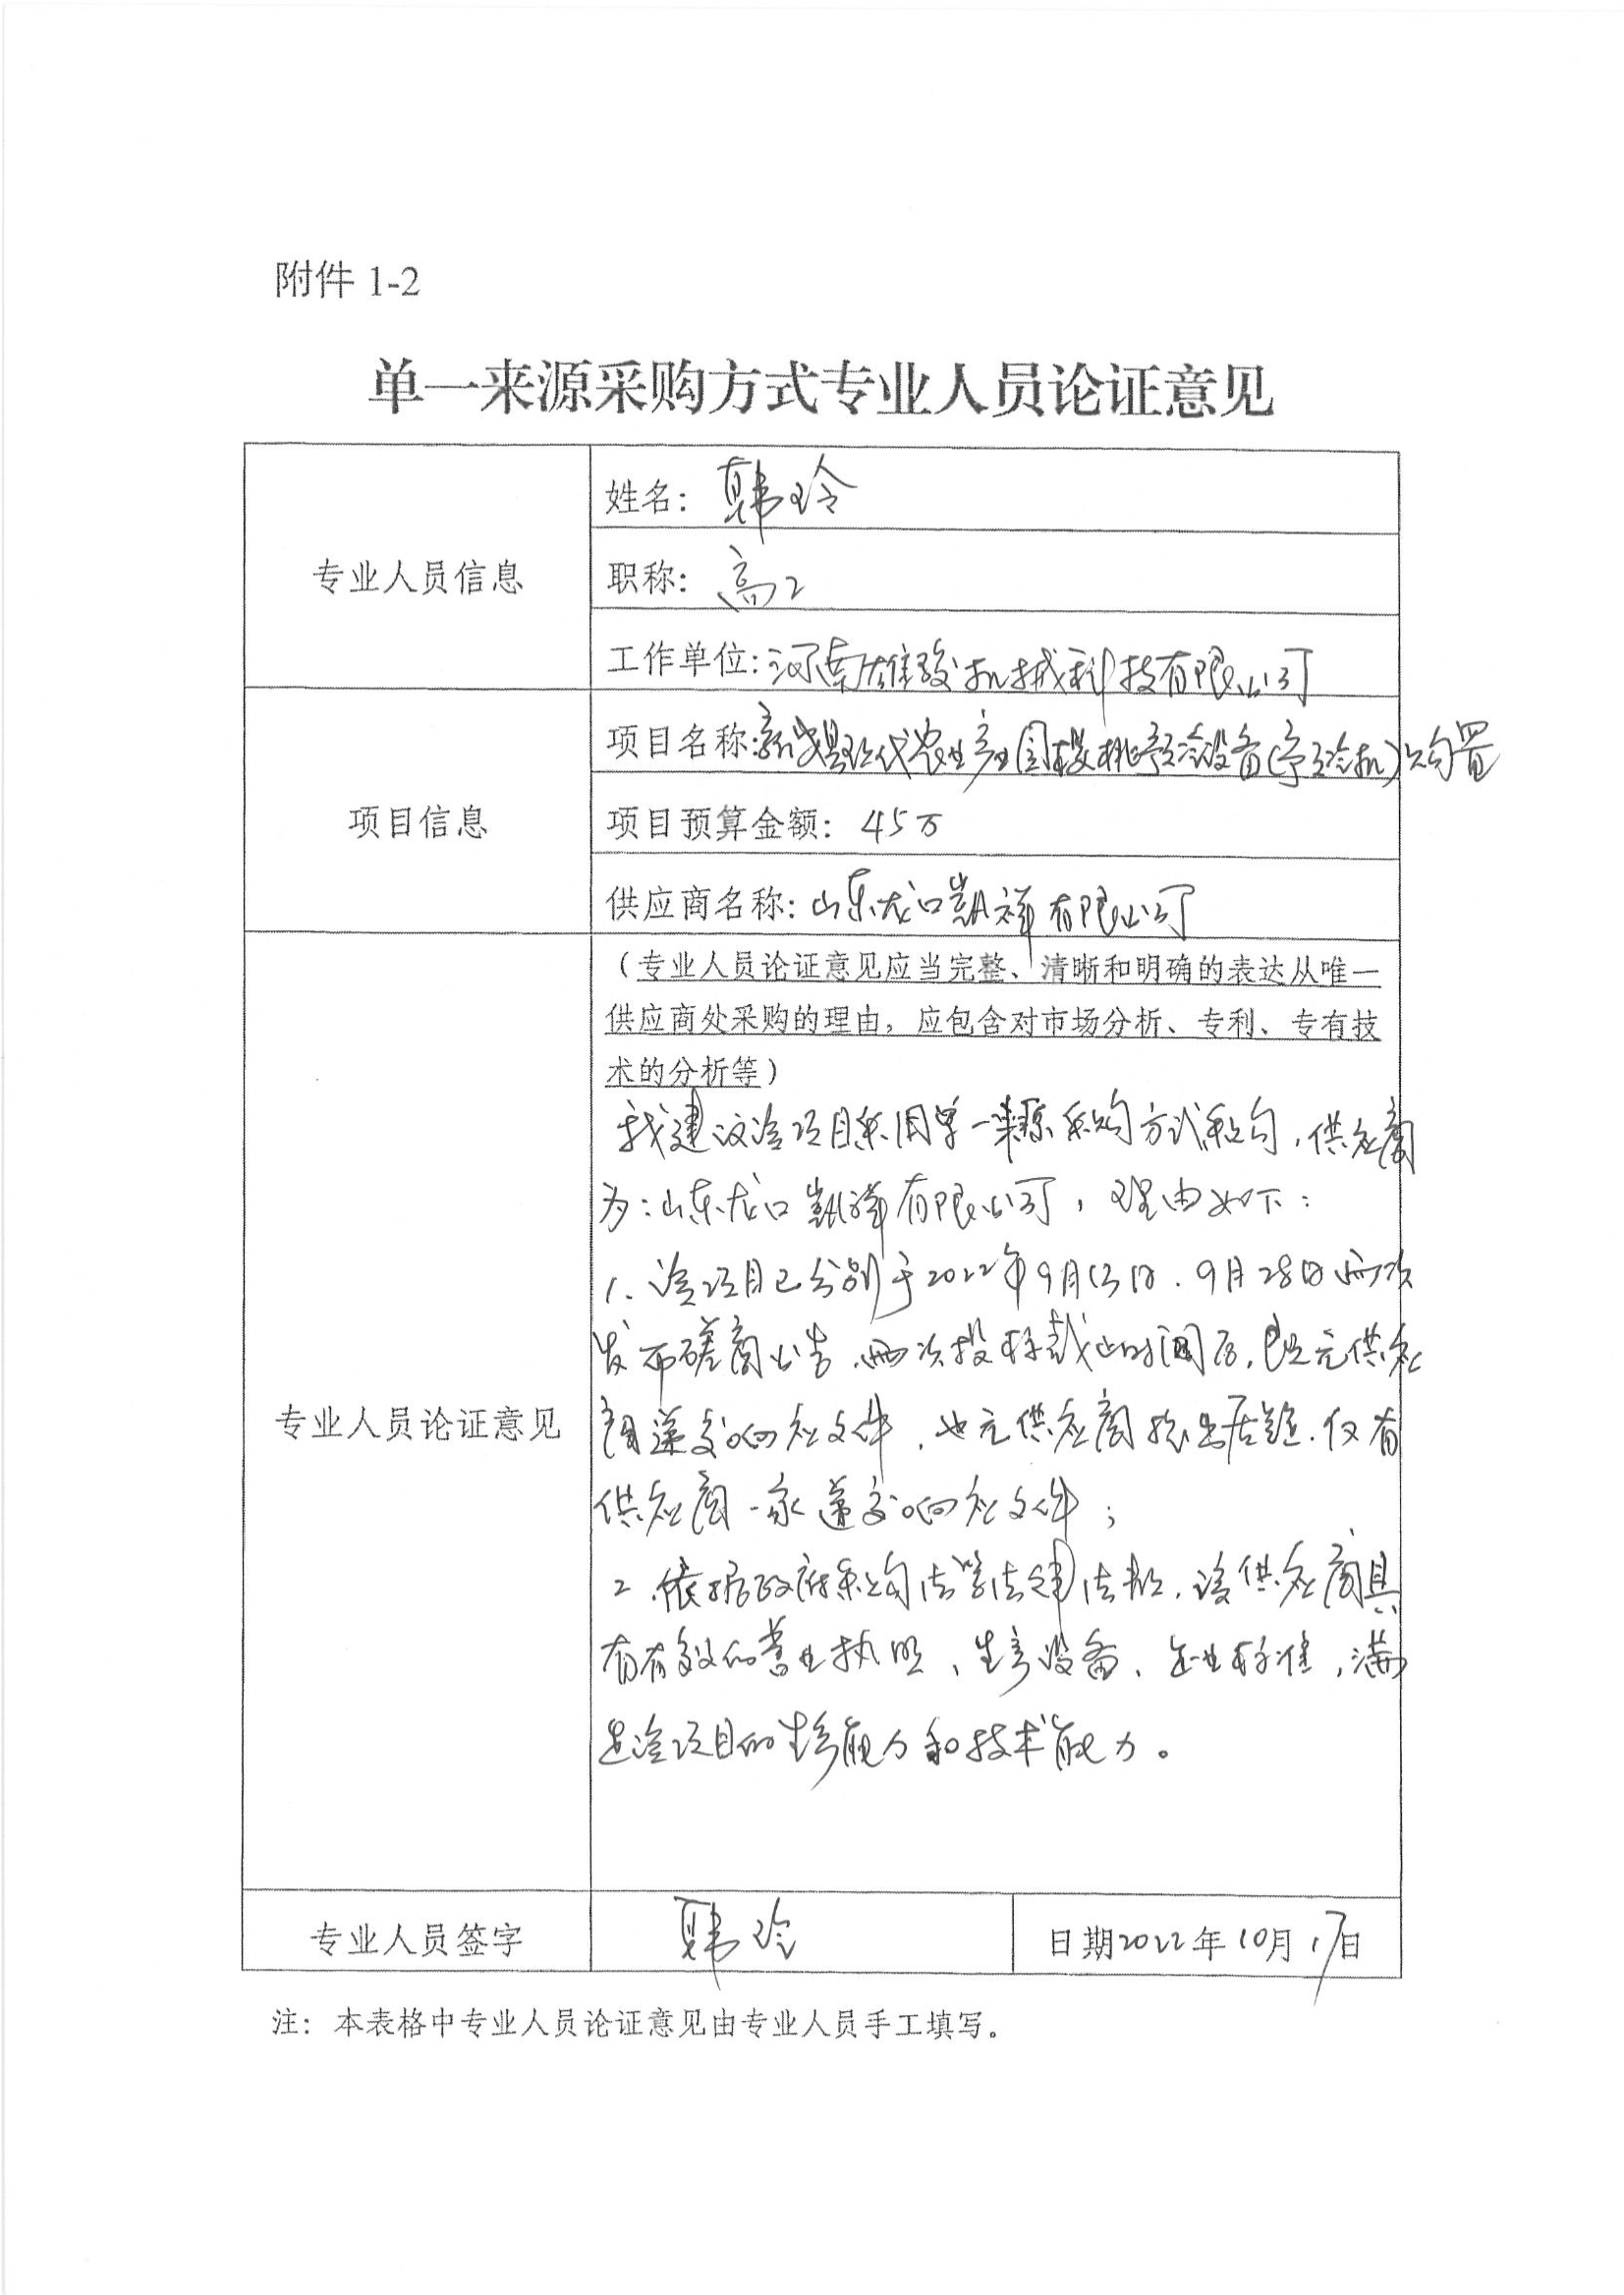 附件 1-2
单一来源采购方式专业人员论证意见
专业人员信息
姓名：韩玲
职称：高工
工作单位：河南雄骏机械科技有限公司
项目信息
项目名称：新安县现代农业产业园樱桃预冷设备（预冷机）购置
项目预算金额：45万
供应商名称：山东龙口凯祥有限公司
专业人员论证意见
（专业人员论证意见应当完整、清晰和明确的表达从唯一
供应商处采购的理由，应包含对市场分析、专利、专有技
术的分析等）
我建议该项目采用单一来源采购方式采购，供应商
为：山东龙口凯祥有限公司，理由如下：
1、该项目已分别于2022年9月13日、9月28日两次
发布磋商公告，两次投标截止时间后，既无供应
商递交响应文件，也无供应商提出质疑，仅有
供应商一家递交响应文件；
2、依据政府采购法等法律法规，该供应商具
有有效的营业执照、生产设备、企业标准，满
足该项目的生产能力和技术能力。
专业人员签字
韩玲
日期2022年10月17日
注：本表格中专业人员论证意见由专业人员手工填写。